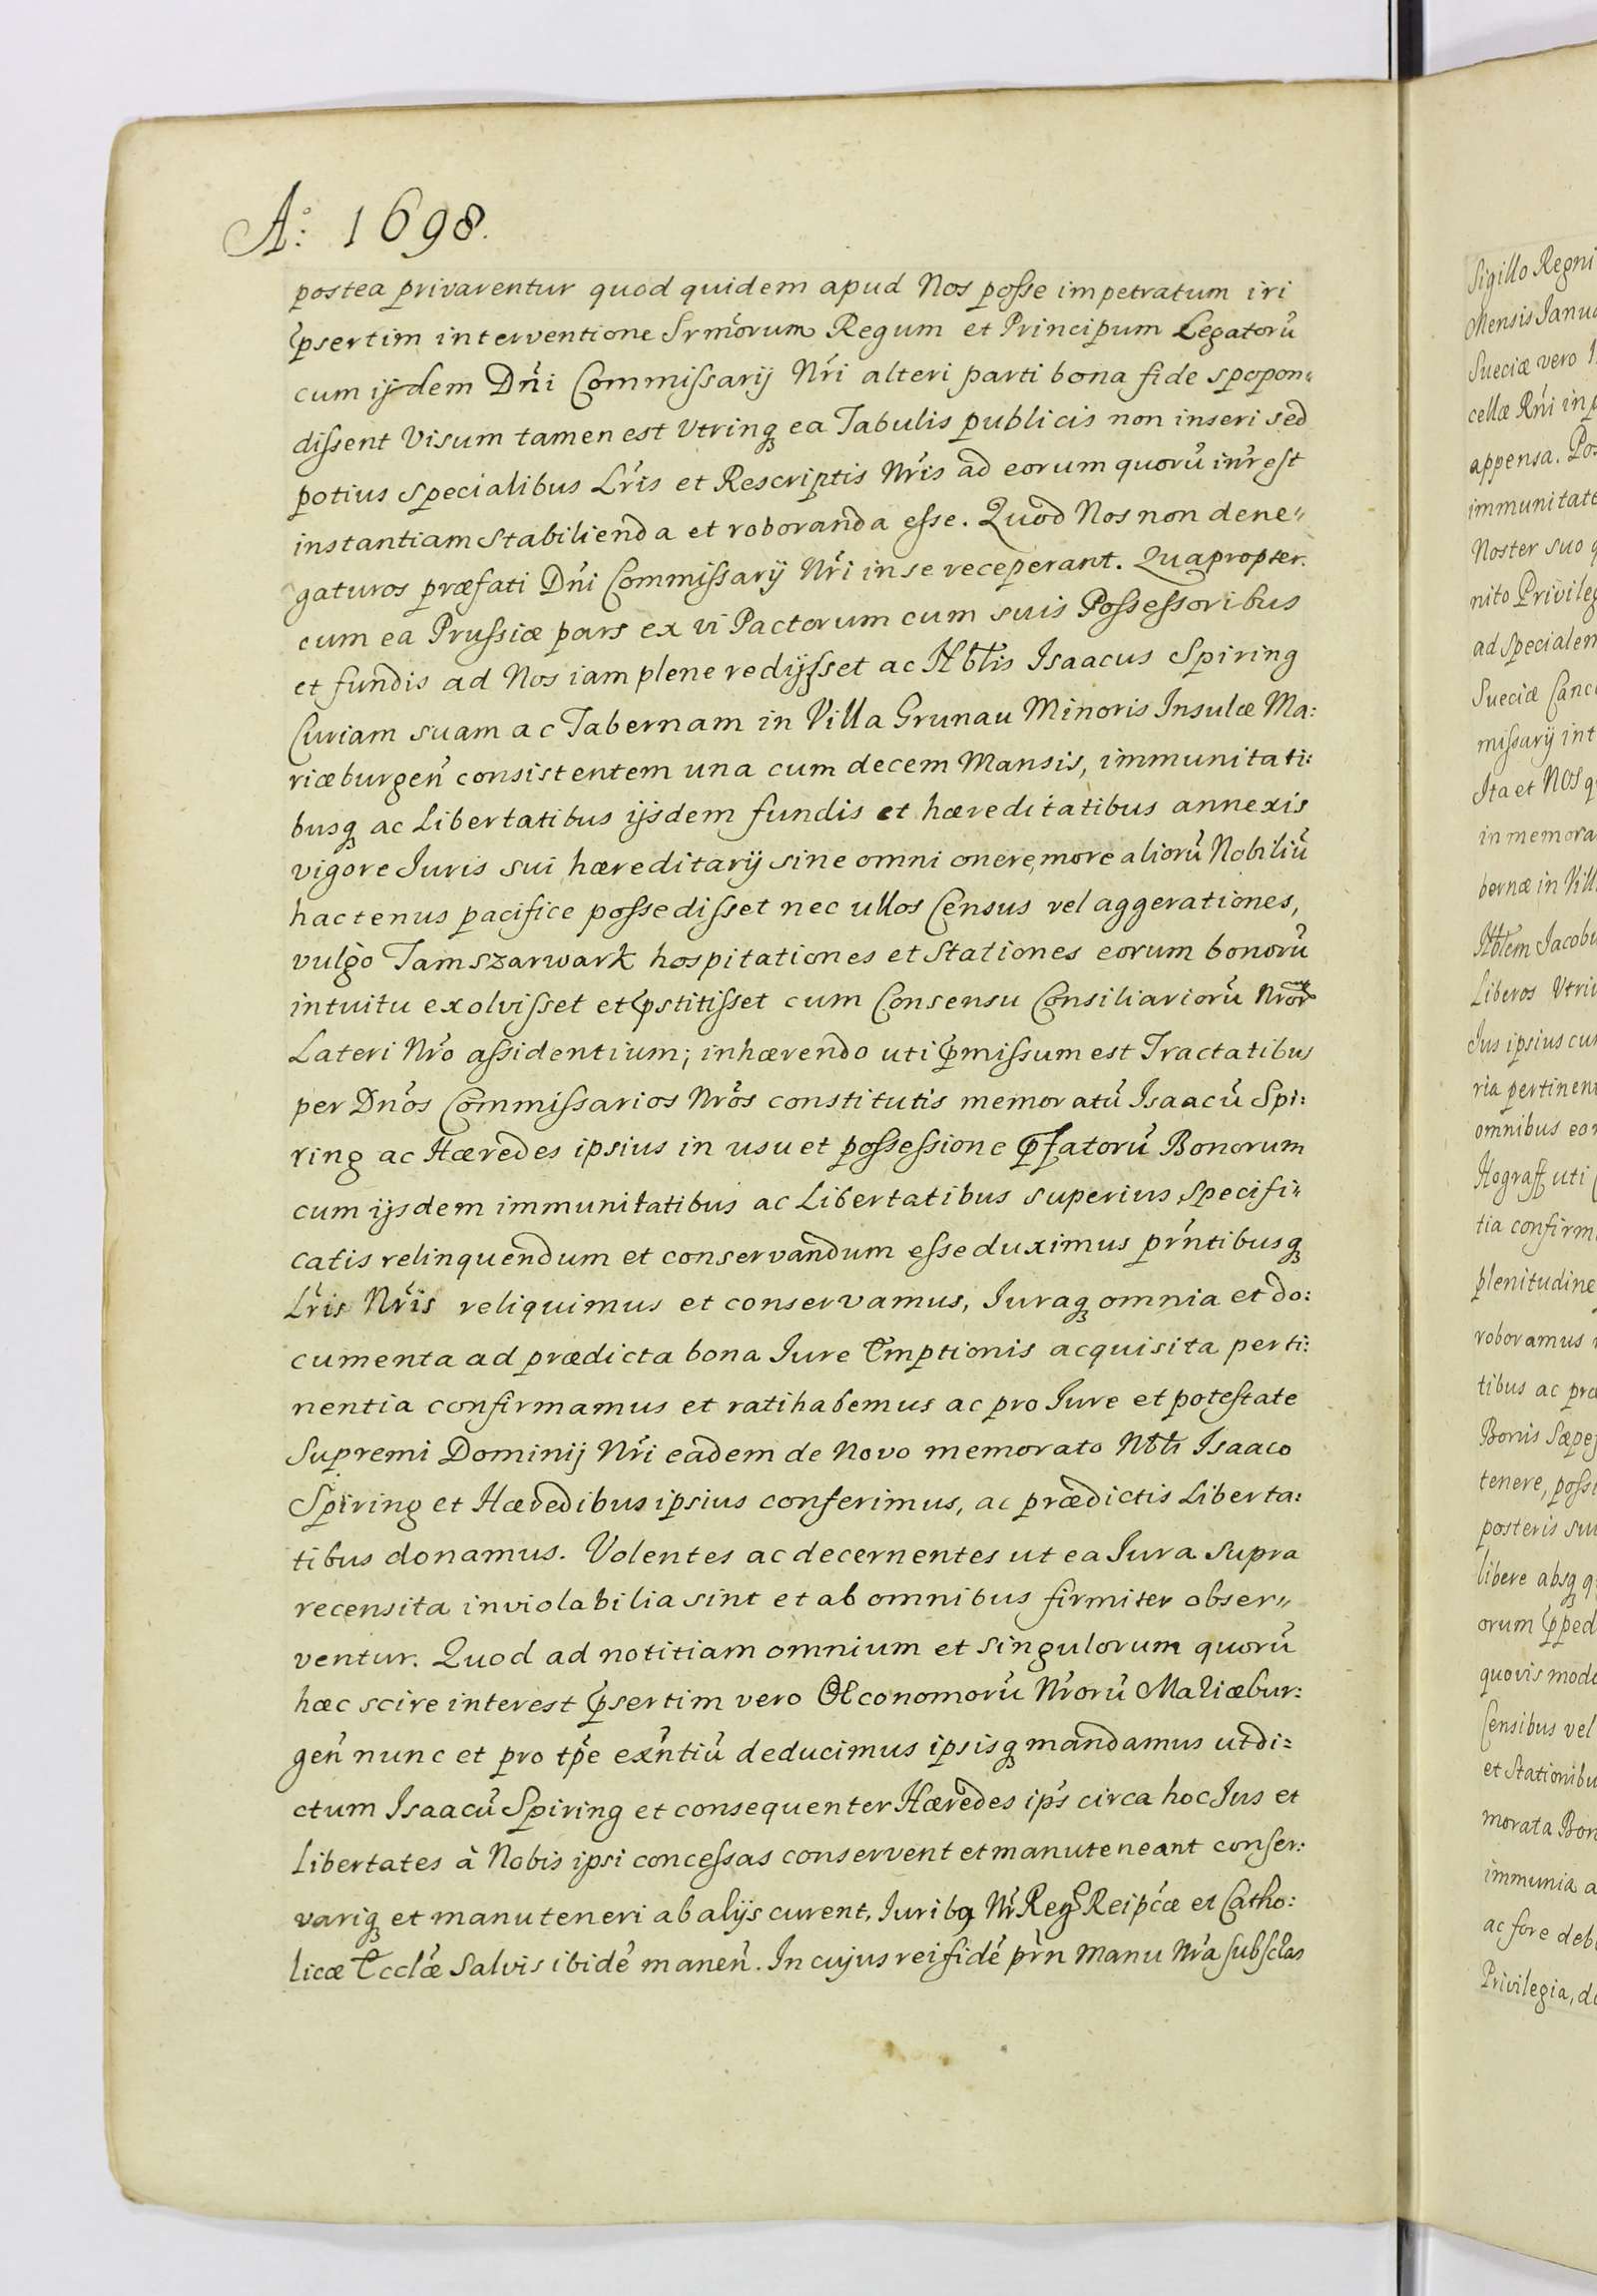 A.° 1698.
postea privarentur quod quidem apud Nos posse impetratum iri
p̃sertim interventione Srm̃orum Regum et Principum Legatorũ
cum ijsdem Dñi Commissarij Nr̃i alteri parti bona fide spopon„
dissent Visum tamen est Utrinq̃ ea Tabulis publicis non inseri sed
potius specialibus Lr̃is et Rescriptis Nr̃is ad eorum quorũ inr̃est
instantiam stabilienda et roboranda esse. Quod Nos non dene„
gaturos præfati Dñi Commissarij Nr̃i in se receperant. Quapropter
cum ea Prussiæ pars ex vi Pactorum cum suis Possessoribus
et fundis ad Nos iam plene redijsset ac Nb̃lis Isaacus Spiring
Curiam suam ac Tabernam in Villa Grunau Minoris Insulæ Ma:
riæburgeñ consistentem una cum decem Mansis, immunitati:
busq̃ ac Libertatibus ijsdem fundis et hæreditatibus annexis
vigore Juris sui hæreditarij sine omni onere, more aliorũ Nobiliũ
hactenus pacifice possedisset nec ullos Census vel aggerationes,
vulgò Tamszarwark hospitationes et Stationes eorum bonorũ
intuitu exolvisset et p̃stitisset cum Consensu Consiliariorũ Nror̃
Lateri Nr̃o assidentium; inhærendo uti p̃missum est Tractatibus
per Dños Commissarios Nr̃os constitutis memoratũ Isaacũ Spi:
ring ac Hæredes ipsius in usu et possessione p̃fatorũ Bonorum
cum ijsdem immunitatibus ac Libertatibus superius specifi„
catis relinquendum et conservandum esse duximus pr̃ntibusq̃
Lr̃is Nr̃is reliquimus et conservamus, Juraq̃ omnia et do:
cumenta ad prædicta bona Jure Emptionis acquisita perti:
nentia confirmamus et ratihabemus ac pro Jure et potestate
Supremi Dominij Nr̃i eadem de Novo memorato Nb̃li Isaaco
Spiring et Hæredibus ipsius conferimus, ac prædictis Liberta:
tibus donamus. Volentes ac decernentes ut ea Jura supra
recensita inviolabilia sint et ab omnibus firmiter obser„
ventur. Quod ad notitiam omnium et singulorum quorũ
hæc scire interest p̃sertim vero Œconomorũ Nr̃orũ Mariæbur:
geñ nunc et pro tp̃e exñtiũ deducimus ipsisq̃ mandamus ut di:
ctum Isaacũ Spiring et consequenter Hæredes ips̃ circa hoc Jus et
Libertates à Nobis ipsi concessas conservent et manuteneant conser:
variq̃ et manuteneri ab alijs curent, Juribq Nr̃ Reg̃ Reipc̃æ et Catho:
licæ Eccl̃æ Salvis ibidẽ maneñ. In cujus rei fidẽ pr̃n manu Nr̃a subsc̃las
Sigillo Regni
Mensis Janua
Sueciæ vero
cellæ Rñi in p
appensa. Pos
immunitate
Noster suo q
nito Privileg
ad specialem
Sueciæ Cance
missarij int
Ita et NOS q
in memora
bernæ in Vill
Nb̃lem Jacobu
Liberos Utri
Jus ipsius cu
ria pertinen
omnibus eor
Hograff uti
tia confirm
plenitudine
roboramus
tibus ac præ
Bonis Sæpe
tenere, possi
posteris su
libere absq̃ q
orum p̃ped
quovis modo
Censibus vel
et Stationibu
morata Bon
immunia a
ac fore deb
Privilegia, do